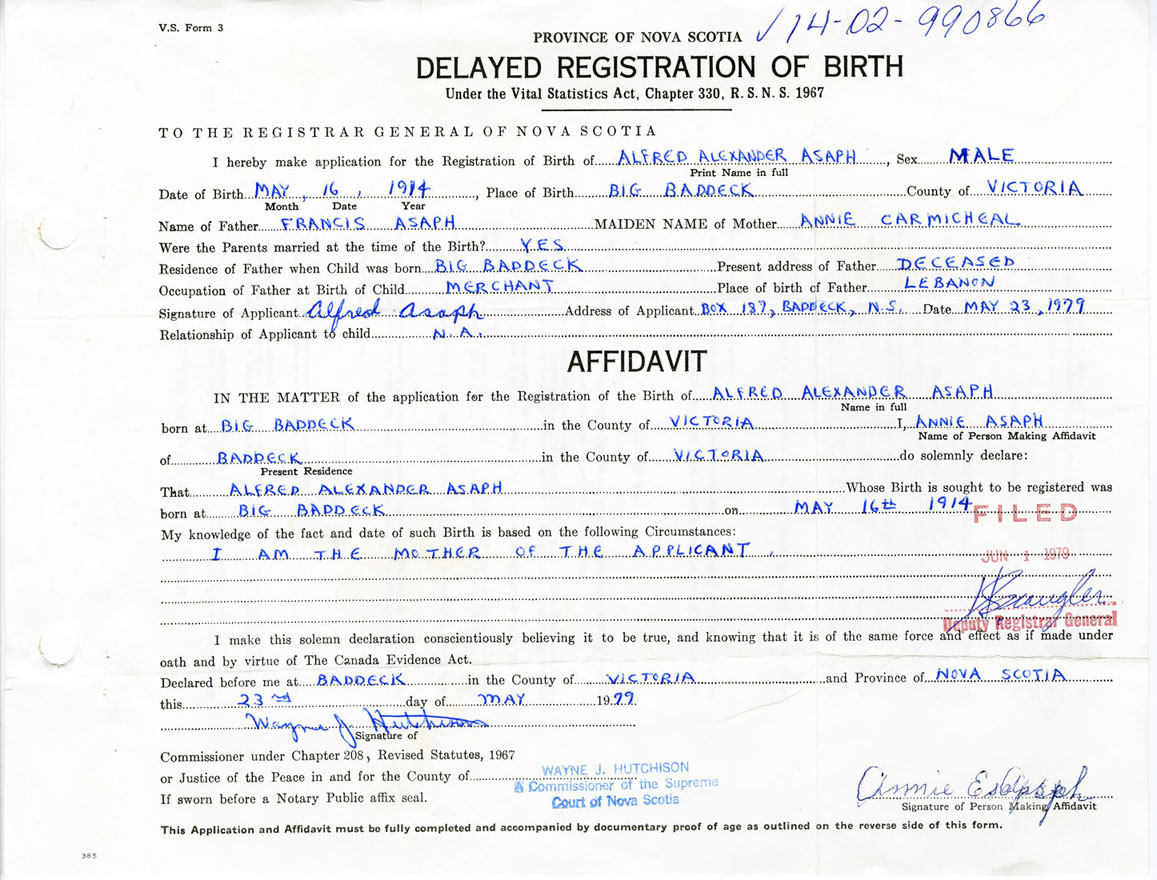 V.S. Form 3
✓ 14-02-990866
PROVINCE OF NOVA SCOTIA
DELAYED REGISTRATION OF BIRTH
Under the Vital Statistics Act, Chapter 330, R. S. N. S. 1967
TO THE REGISTRAR GENERAL OF NOVA SCOTIA
I hereby make application for the Registration of Birth of ALFRED ALEXANDER ASAPH, Sex MALE
Print Name in full
Date of Birth MAY, 16, 1914, Place of Birth BIG BADDECK County of VICTORIA
Month Date Year
Name of Father FRANCIS ASAPH MAIDEN NAME of Mother ANNIE CARMICHEAL
Were the Parents married at the time of the Birth? YES
Residence of Father when Child was born BIG BADDECK Present address of Father DECEASED
Occupation of Father at Birth of Child MERCHANT Place of birth of Father LEBANON
Signature of Applicant Alfred Asaph Address of Applicant BOX 187, BADDECK, N.S. Date MAY 23, 1979
Relationship of Applicant to child N.A.
AFFIDAVIT
IN THE MATTER of the application for the Registration of the Birth of ALFRED ALEXANDER ASAPH
Name in full
born at BIG BADDECK in the County of VICTORIA I, ANNIE ASAPH
Name of Person Making Affidavit
of BADDECK in the County of VICTORIA do solemnly declare:
Present Residence
That ALFRED ALEXANDER ASAPH Whose Birth is sought to be registered was
born at BIG BADDECK on MAY 16th 1914
FILED
My knowledge of the fact and date of such Birth is based on the following Circumstances:
I AM THE MOTHER OF THE APPLICANT.
JUN 1 1979
Deputy Registrar General
I make this solemn declaration conscientiously believing it to be true, and knowing that it is of the same force and effect as if made under
oath and by virtue of The Canada Evidence Act.
Declared before me at BADDECK in the County of VICTORIA and Province of NOVA SCOTIA
this 23rd day of MAY 1979.
Wayne J. Hutchison
Signature of
Commissioner under Chapter 208, Revised Statutes, 1967
or Justice of the Peace in and for the County of
WAYNE J. HUTCHISON
A Commissioner of the Supreme
Court of Nova Scotia
If sworn before a Notary Public affix seal.
Annie Asaph
Signature of Person Making Affidavit
This Application and Affidavit must be fully completed and accompanied by documentary proof of age as outlined on the reverse side of this form.
385